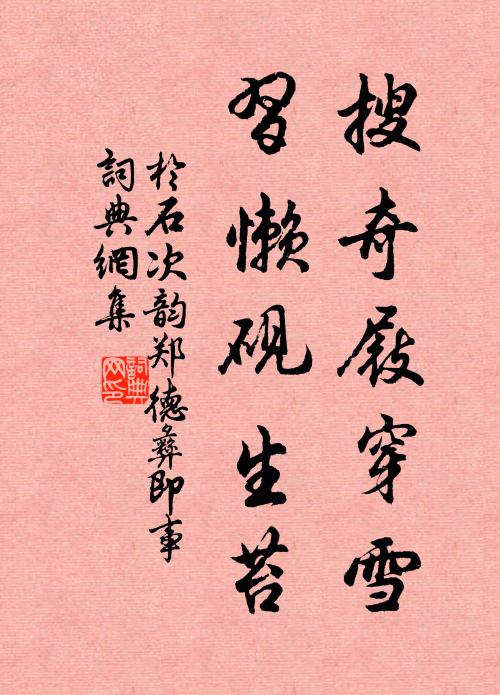 搜奇屐穿雪
習懶硯生苔
於石次韵郑德彝即事
詞典網集
詞典网印